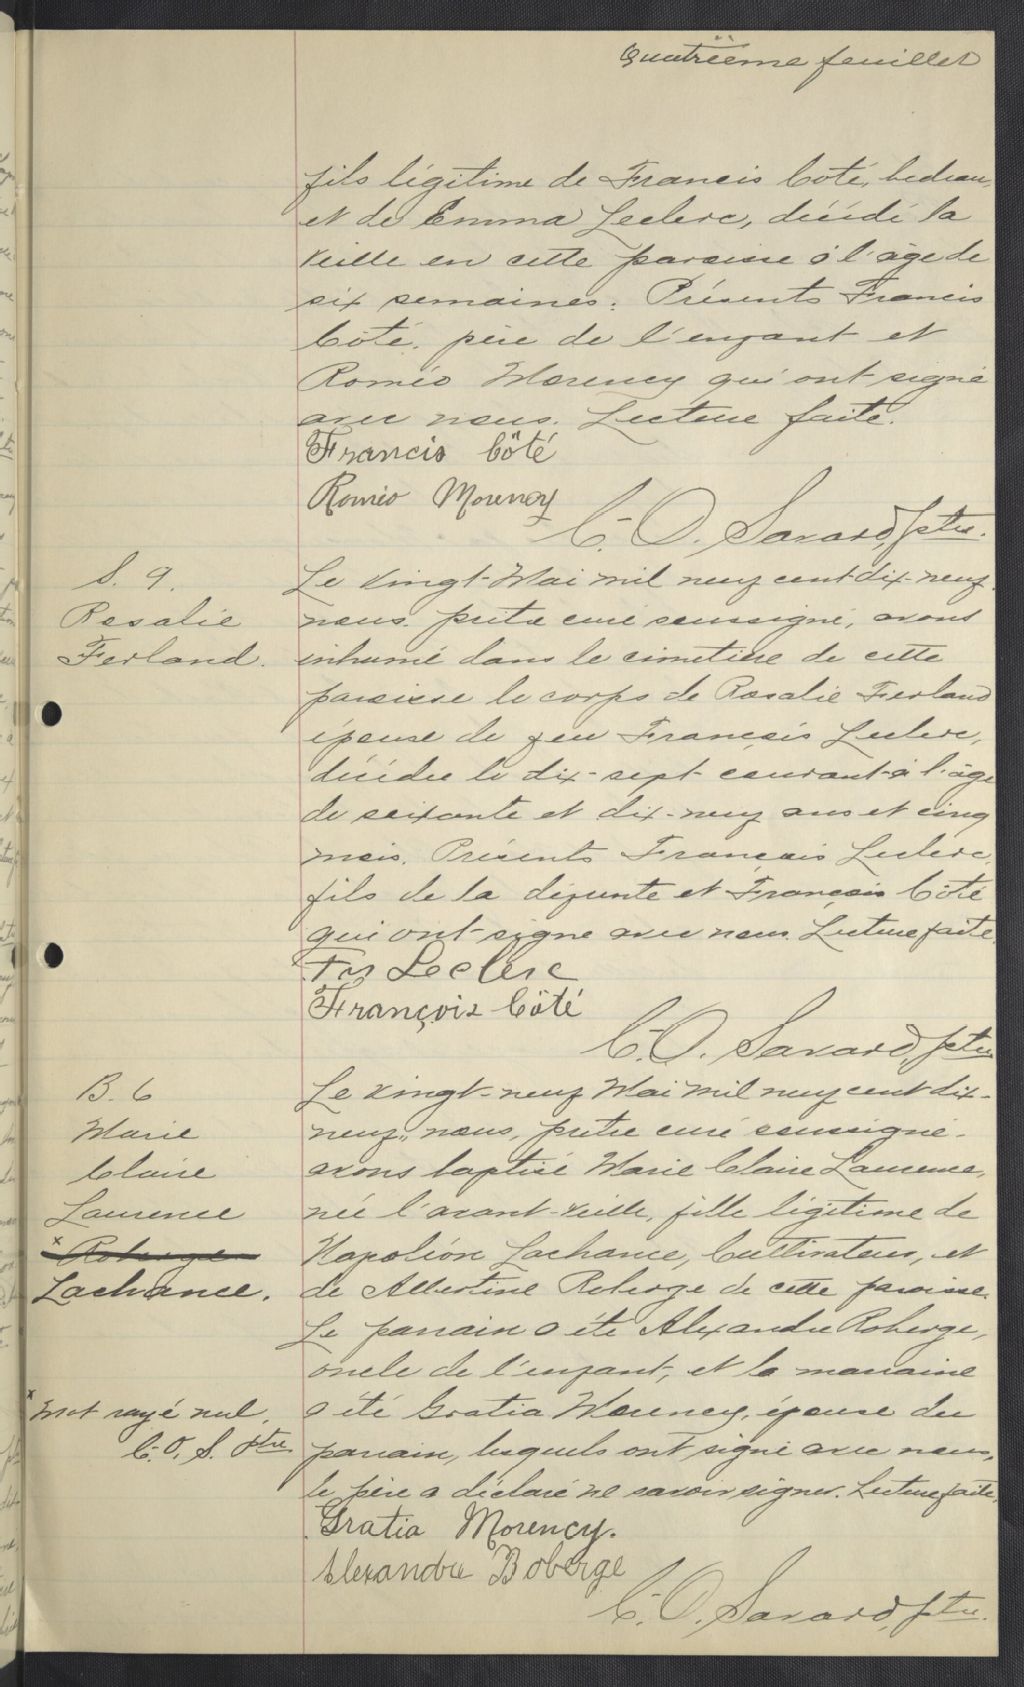 Quatrième feuillet
fils légitime de Francis Côté, bedeau,
et de Emma Leclerc, décédé la
veille en cette paroisse à l'âge de
six semaines. Présents Francis
Côté, père de l'enfant et
Roméo Morency qui ont signé
avec nous. Lecture faite.
Francis Côté
Roméo Morency
C. O. Savard, ptre.
S. 9.
Rosalie
Ferland.
Le vingt Mai mil neuf cent dix-neuf
nous prêtre curé soussigné, avons
inhumé dans le cimetière de cette
paroisse le corps de Rosalie Ferland
épouse de feu François Leclerc,
décédée le dix-sept courant à l'âge
de soixante et dix-neuf ans et cinq
mois. Présents François Leclerc,
fils de la défunte et François Côté
qui ont signé avec nous. Lecture faite.
Frs Leclerc
François Côté
C. O. Savard, ptre
B. 6
Marie
Claire
Laurence
x Roberge
Lachance.
x Mot rayé nul.
C. O. S. ptre
Le vingt-neuf Mai mil neuf cent dix-
neuf, nous, prêtre curé soussigné.
avons baptisé Marie Claire Laurence,
née l'avant-veille, fille légitime de
Napoléon Lachance, Cultivateur, et
de Albertine Roberge de cette paroisse.
Le parrain a été Alexandre Roberge,
oncle de l'enfant, et la marraine
a été Gratia Morency, épouse du
parrain, lesquels ont signé avec nous,
le père a déclaré ne savoir signer. Lecture faite.
Gratia Morency.
Alexandre Roberge
C. O. Savard, ptre.